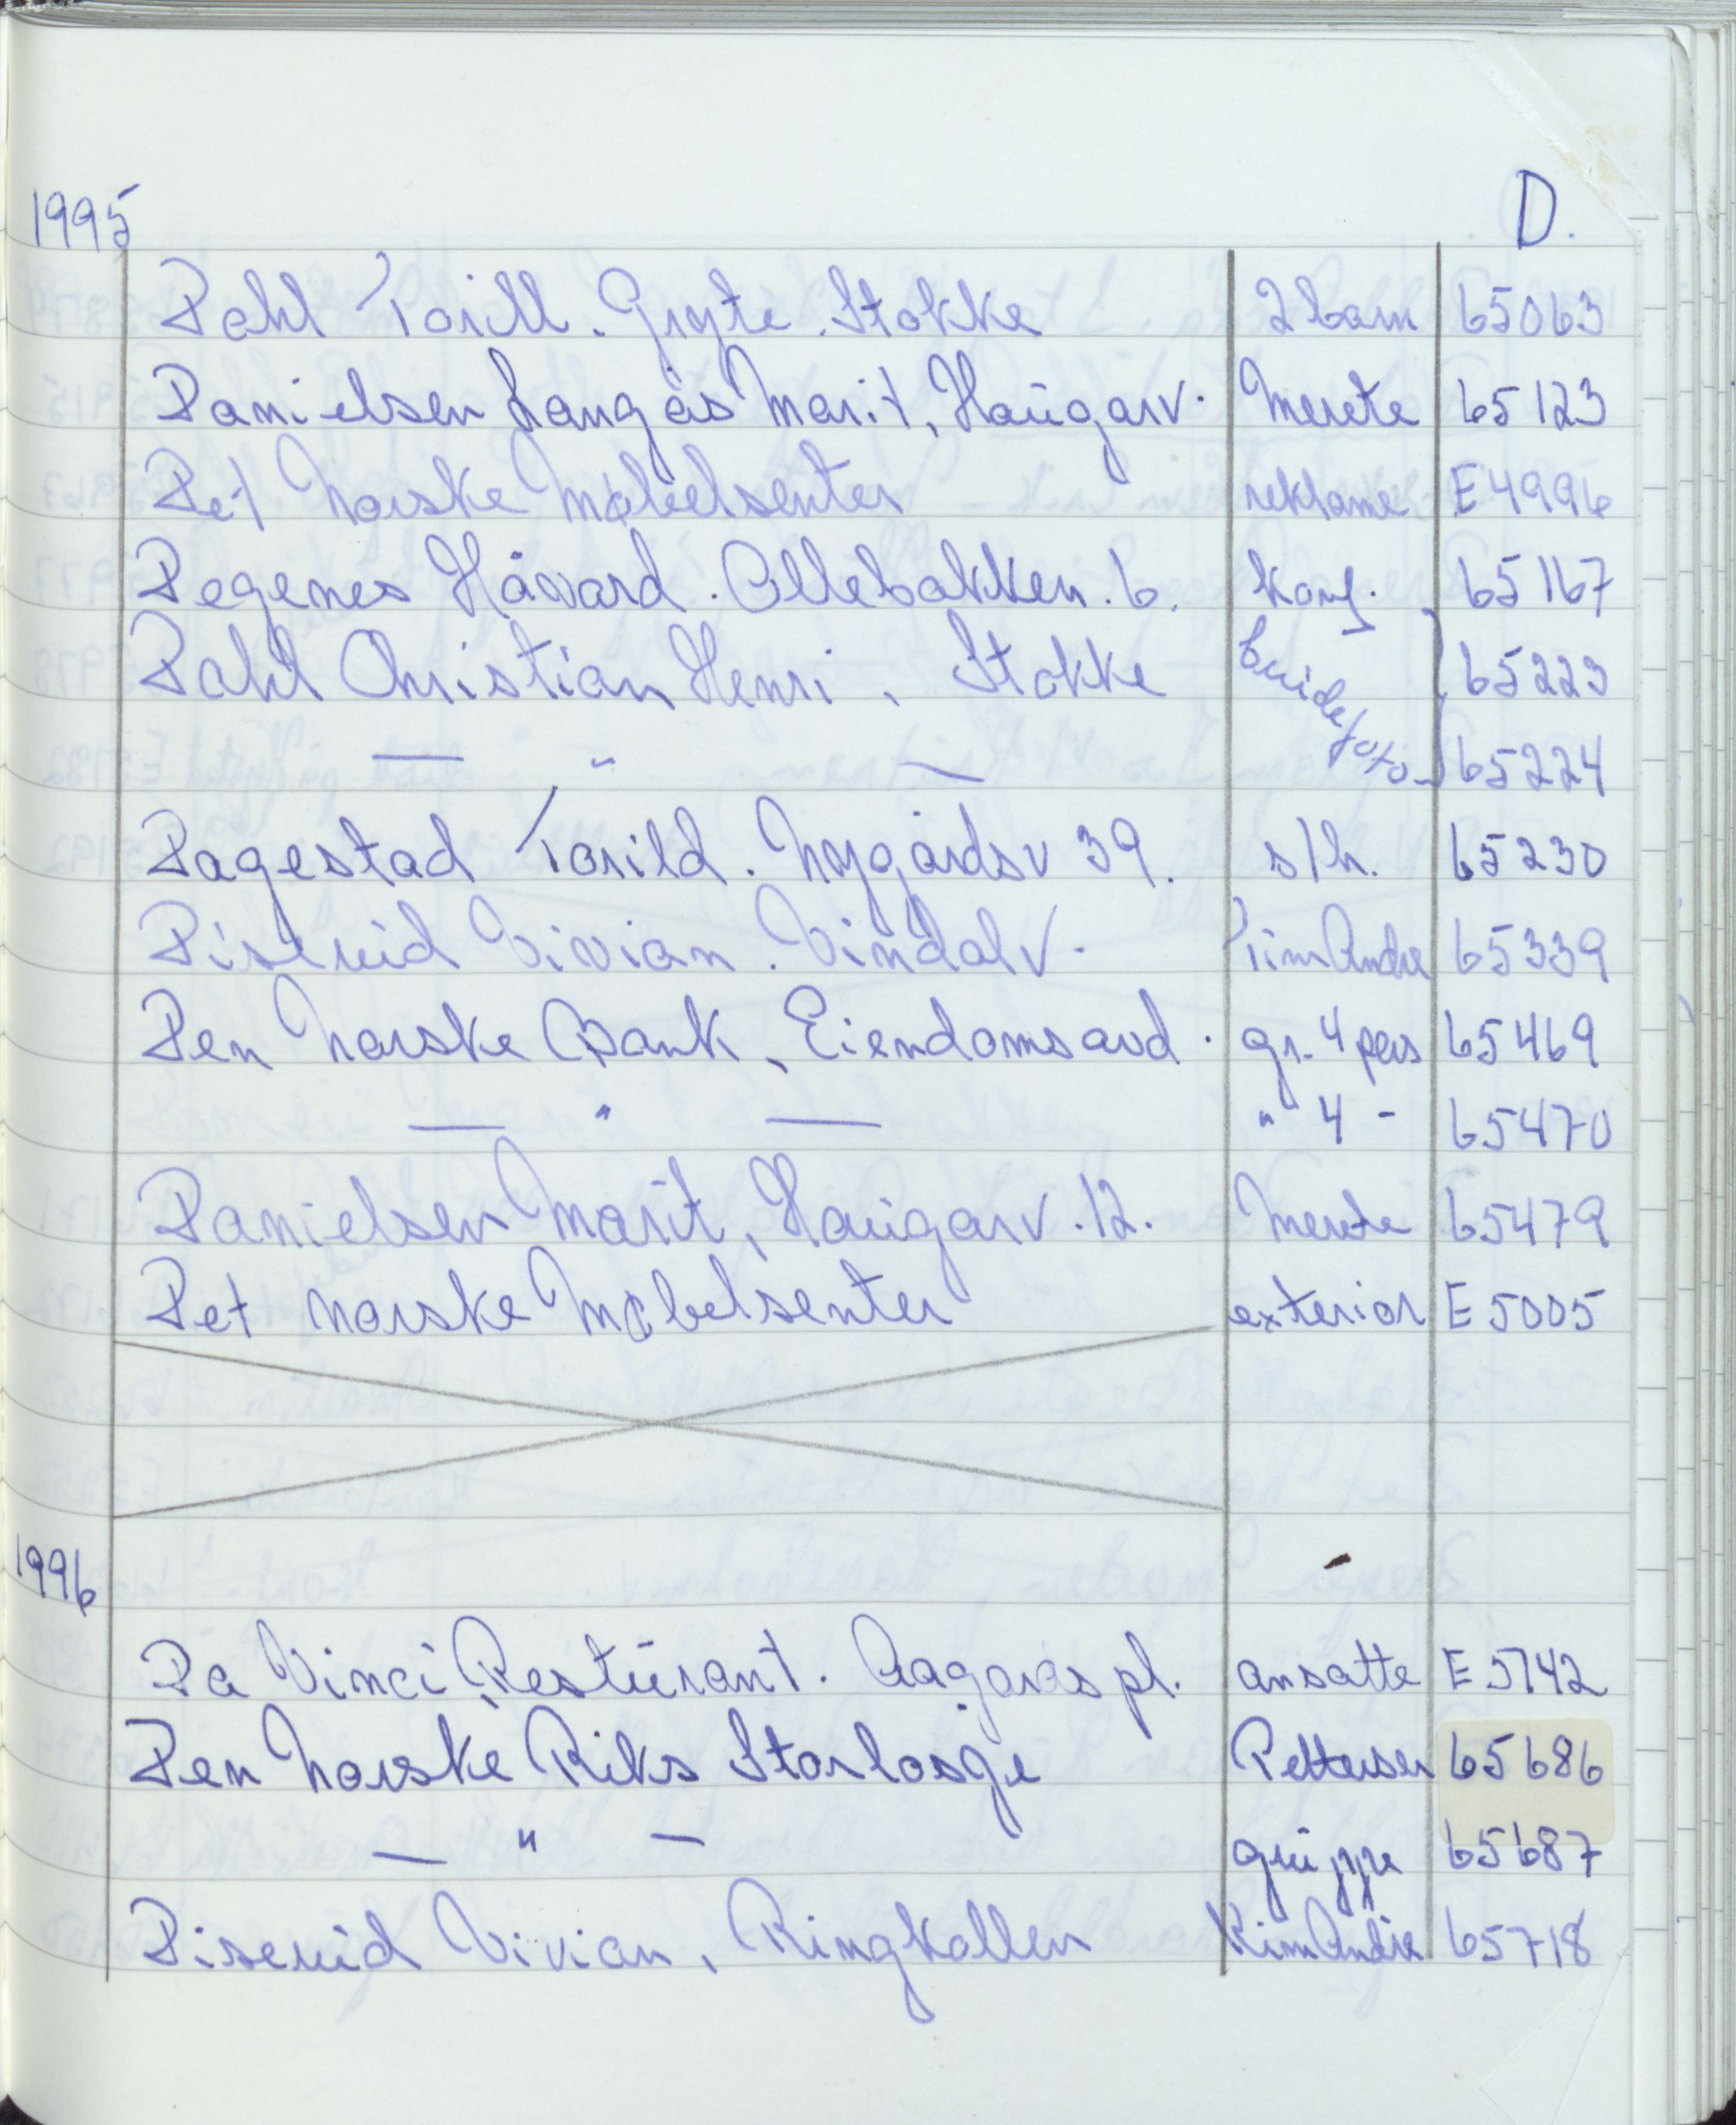 1995 D.
Dahl Torill. Gryte. Stokke 2 barn 65063
Danielsen Langås Marit, Haugarv. Merete 65123
Det Norske Møbelsenter reklame E 4996
Degenes Håvard. Ollebakken. 6. konf. 65167
Dahl Christian Henri, Stokke brudefoto 65223
— " — 65224
Dagestad Torild. Nygårdsv 39. s/h. 65230
Diserud Vivian. Vindalv. 65339
Den Norske Bank, Eiendomsavd. gr. 4 pers 65469
— " — " 4 - 65470
Danielsen Marit, Haugarv. 12. Merete 65479
Det norske Møbelsenter exteriør E 5005
1996
Da Vinci Restürant. Aagards pl. ansatte E 5142
Den Norske Riks Storlosje Pettersen 65686
— " — gruppe 65687
Diserud Vivian, Ringkollen Kim Andre 65718